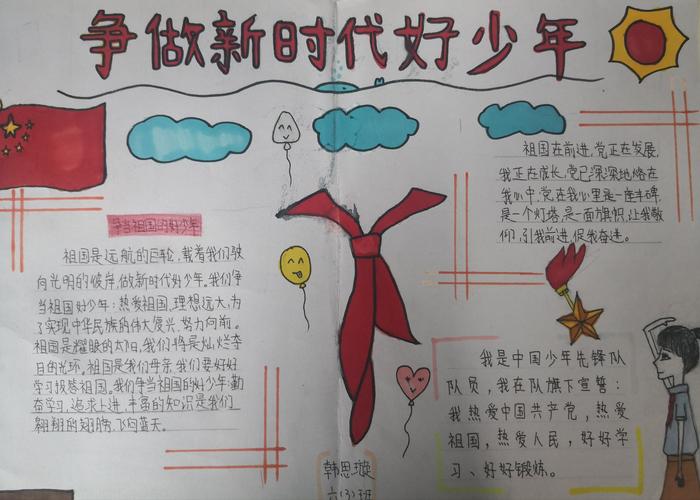 争做新时代好少年
争当祖国的好少年
祖国是远航的巨轮,载着我们驶
向光明的彼岸,做新时代好少年。我们争
当祖国好少年:热爱祖国,理想远大,为
了实现中华民族的伟大复兴,努力向前。
祖国是耀眼的太阳,我们将是灿烂夺
目的光环,祖国是我们母亲,我们要好好
学习报答祖国。我们争当祖国的好少年:勤
奋学习,追求上进,丰富的知识是我们
翱翔的翅膀,飞向蓝天。
祖国在前进,党正在发展,
我正在成长,党已深深地烙在
我心中,党在我心里是一座丰碑,
是一个灯塔,是一面旗帜,让我敬
仰,引我前进,促我奋进。
我是中国少年先锋队
队员,我在队旗下宣誓:
我热爱中国共产党,热爱
祖国,热爱人民,好好学
习、好好锻炼。
韩思璇
六(3)班